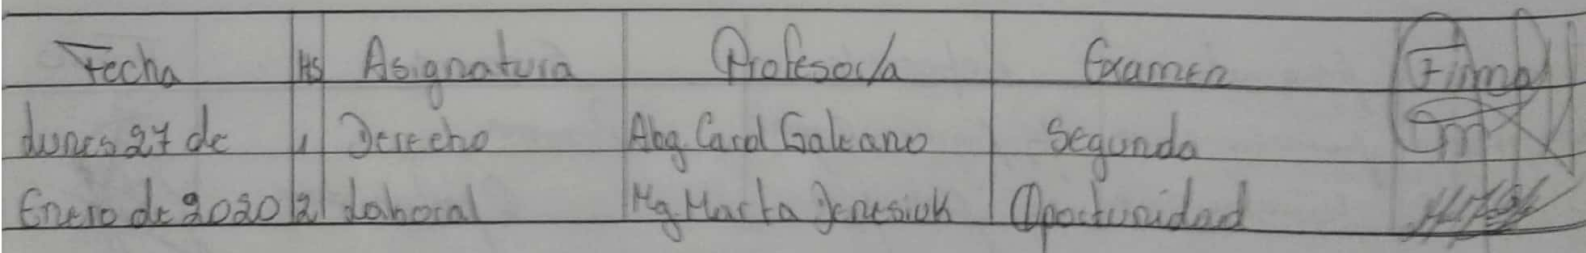 Fecha Hs Asignatura Profesor/a Examen Firma
Lunes 27 de 1 Derecho Abg. Carol Galeano Segunda
Enero de 2020 2 Laboral Mg. Marta Oportunidad